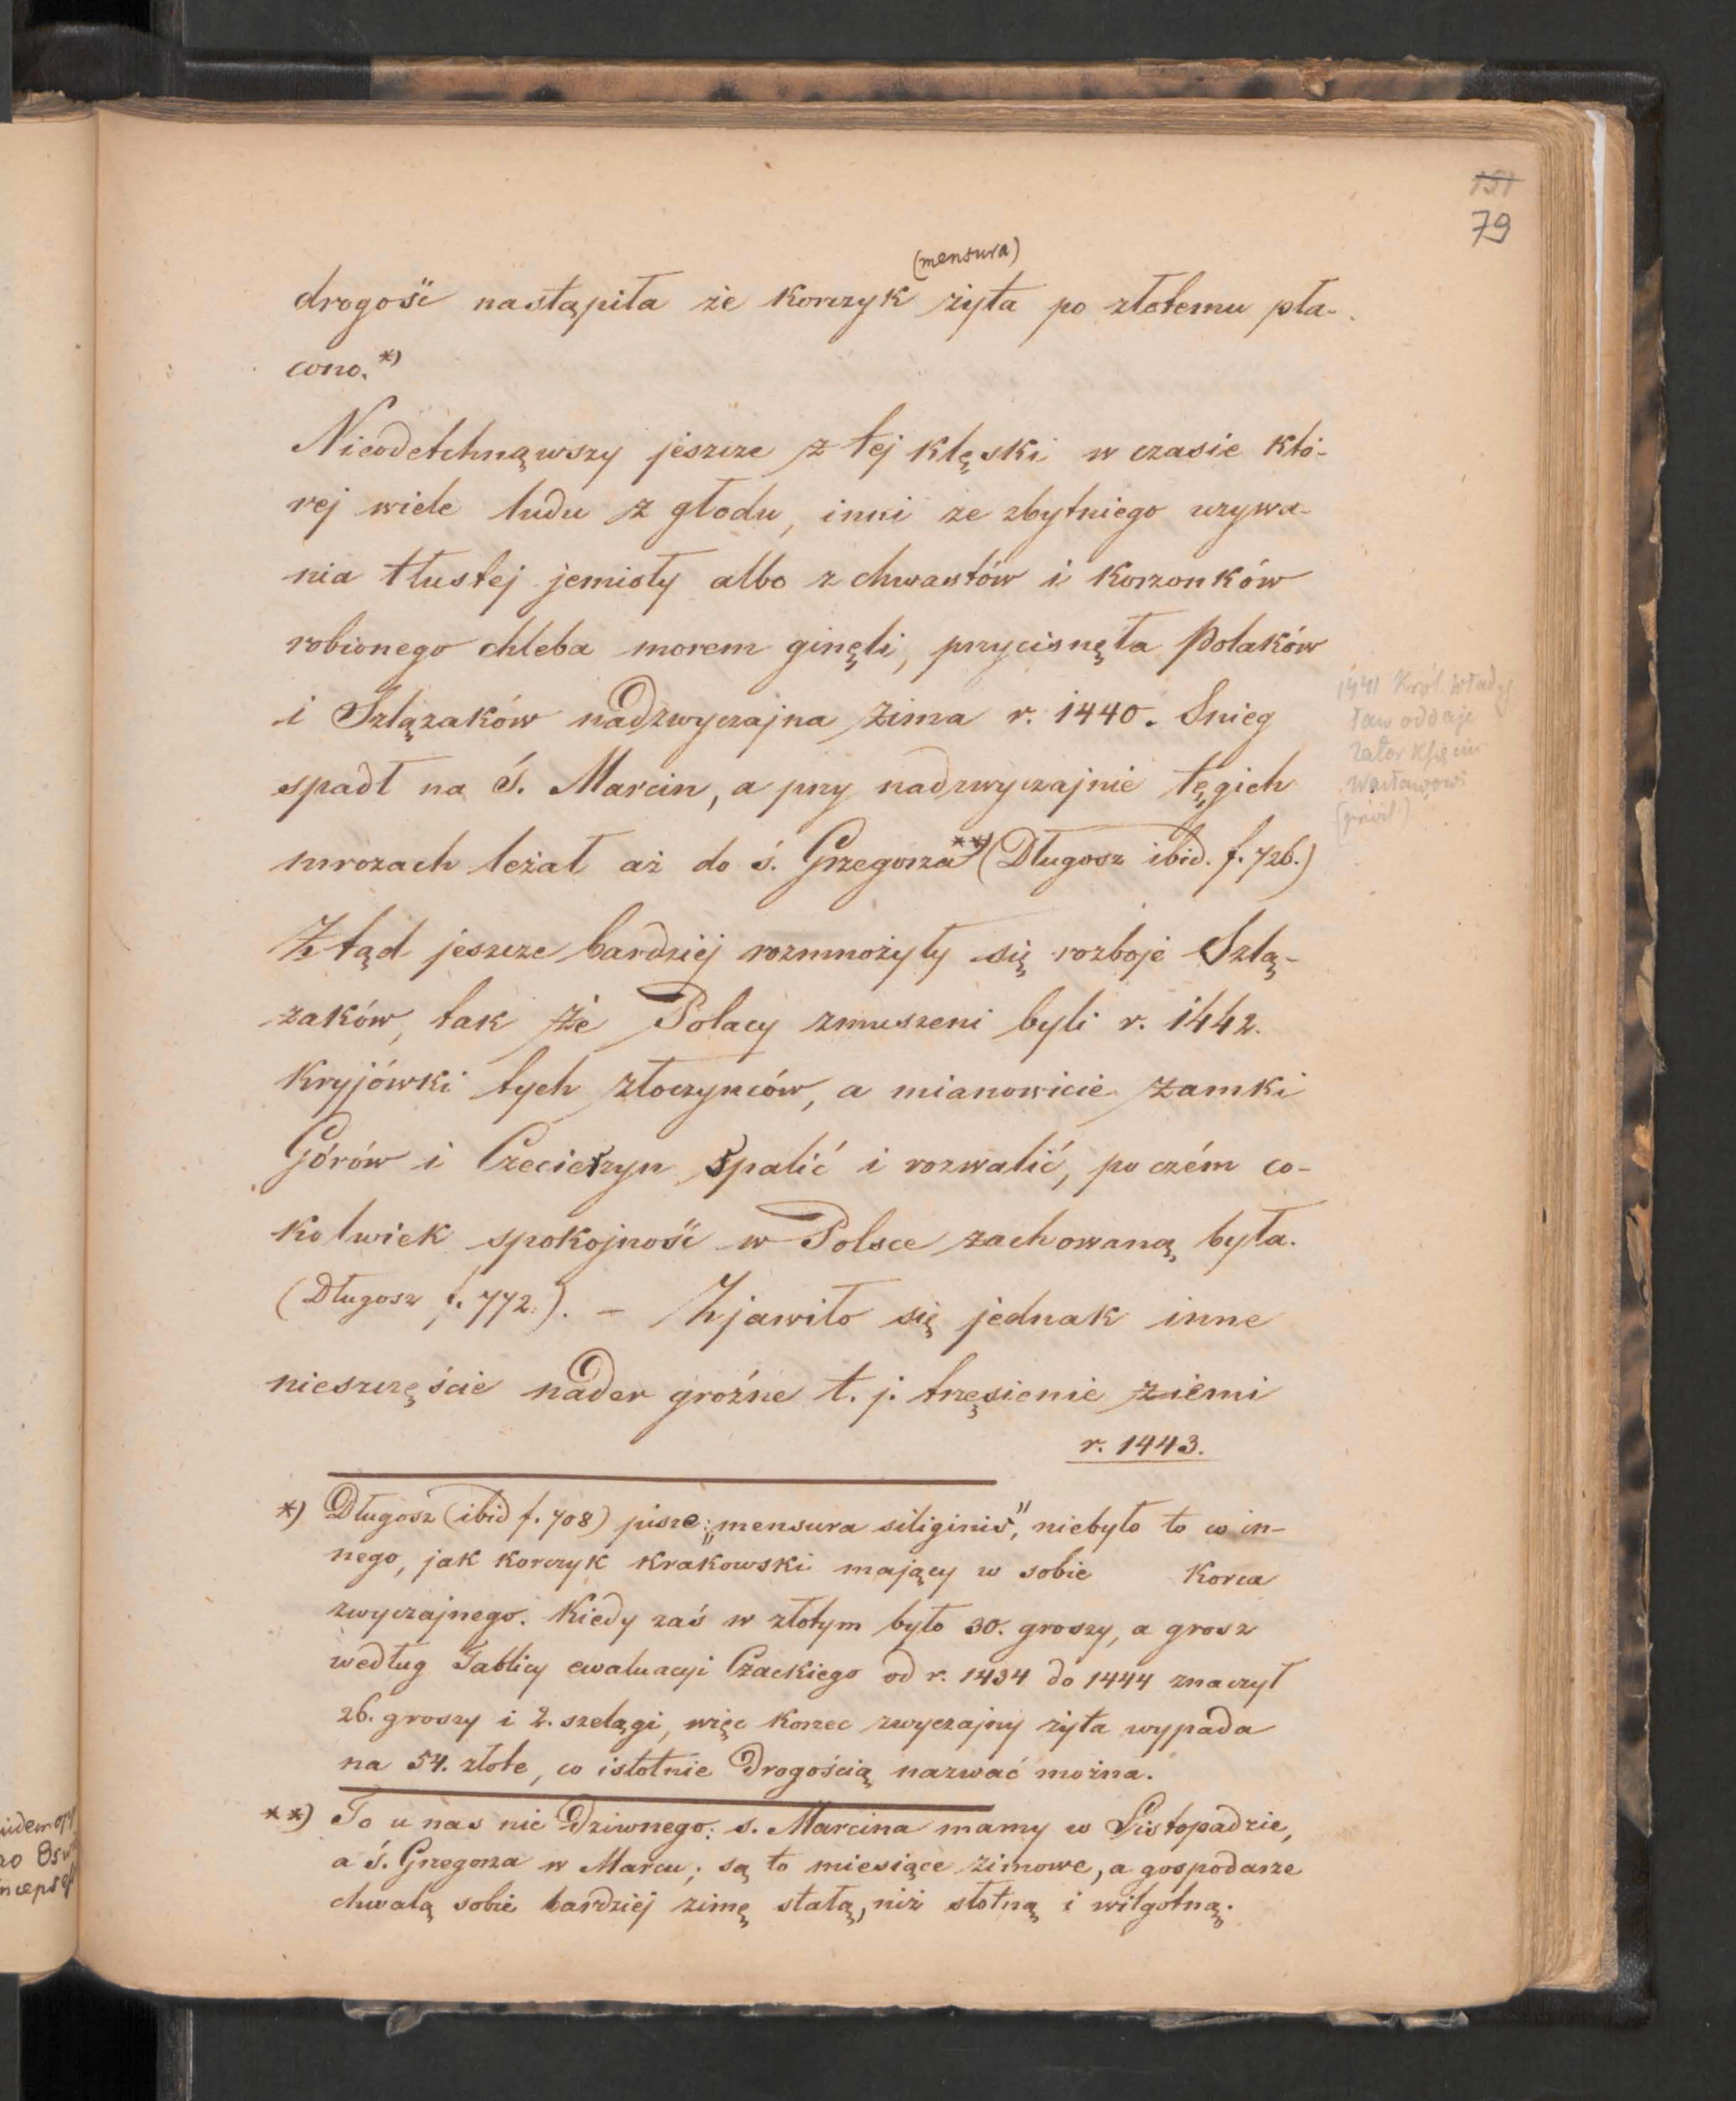 151
79
(mensura)
drogość nastąpiła że korczyk żyta po złotemu pła-
cono.*)
Nieodetchnąwszy jeszcze z tej klęski w czasie któ-
rej wiele ludu z głodu, inni ze zbytniego używa-
nia tłustej jemioły albo z chwastów i korzonków
robionego chleba morem ginęli, przycisnęła Polaków
i Szlązaków nadzwyczajna zima r. 1440. Śnieg
spadł na Ś. Marcin, a przy nadzwyczajnie tęgich
mrozach leżał aż do ś. Grzegorza**) (Długosz ibid. f. 726.)
Ztąd jeszcze bardziej rozmnożyły się rozboje Szlą-
zaków, tak że Polacy zmuszeni byli r. 1442.
kryjówki tych złoczyńców, a mianowicie zamki
Górów i spalić i rozwalić, po czém co-
kolwiek spokojność w Polsce zachowaną była.
(Długosz f. 772.). – Zjawiło się jednak inne
nieszczęście nader groźne t. j. trzęsienie ziemi
r. 1443.
*) Długosz (ibid f. 708) pisze: „mensura siliginis", niebyło to co in-
nego, jak korczyk krakowski mający w sobie korca
zwyczajnego. Kiedy zaś w złotym było 30. groszy, a grosz
według Tablicy ewaluacyi Czackiego od r. 1434 do 1444 znaczył
26. groszy i 2. szelągi, więc korzec zwyczajny żyta wypada
na 54. złote, co istotnie drogością nazwać można.
**) To u nas nic dziwnego: s. Marcina mamy w Listopadzie,
a ś. Grzegorza w Marcu; są to miesiące zimowe, a gospodarze
chwalą sobie bardziej zimę stałą, niż słotną i wilgotną.
1441 Król Włady
ław oddaje
Zator Księciu
Wacławowi